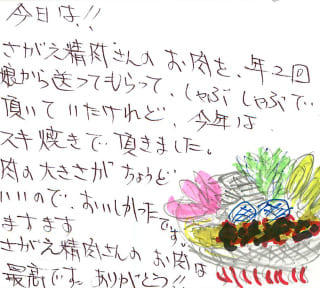 今日は!!
さがえ精肉さんの お肉を、年2回
娘から送ってもらって、しゃぶしゃぶで
頂いていたけれど、今年は
スキ焼きで頂きました。
肉の大きさがちょうど
いいので、おいしかったです。
ますます
さがえ精肉さんの お肉は
最高です。ありがとう!!